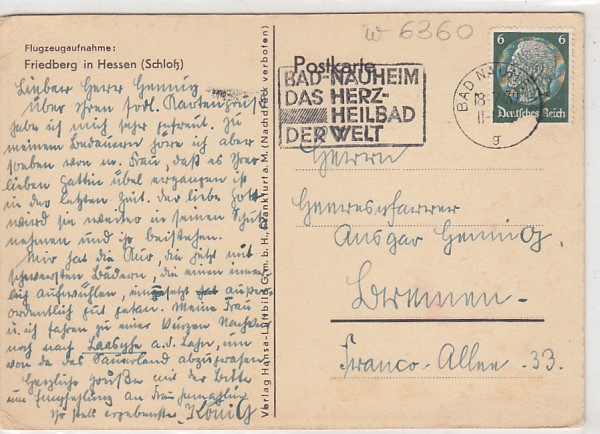 Flugzeugaufnahme:
Friedberg in Hessen (Schloß)
Lieber Herr Gennig
über Ihren frdl. Kartengruß
habe ich mich sehr gefreut. Zu
meinem Bedauern höre ich aber
soeben von m. Frau, daß es Ihrer
lieben Gattin übel ergangen ist
in der letzten Zeit. Der liebe Gott
wird sie weiter in seinen Schutz
nehmen und ihr beistehen.
Mir hat die Kur, die jetzt mit
schwersten Bädern, die einen
aufwühlen, eingesetzt hat außer-
ordentlich gut getan. Meine Frau
u. ich fahren zu einer kurzen
noch nach Laasphe a. d. Lahn, um
von da das Sauerland abzugrasen.
Herzliche Grüße mit der Bitte
um Empfehlung an Frau Gemahlin
Ihr stets ergebenster König
Verlag Hansa-Luftbild G.m.b.H., Frankfurt a. M. (Nachdruck verboten)
w 6360
Postkarte
BAD-NAUHEIM
DAS HERZ-
HEILBAD
DER WELT
BAD NAU
18.
11-
g
6 6
Deutsches Reich
Herrn
Heerespfarrer
Ansgar Gennig.
Bremen-
Franco-Allee 33.